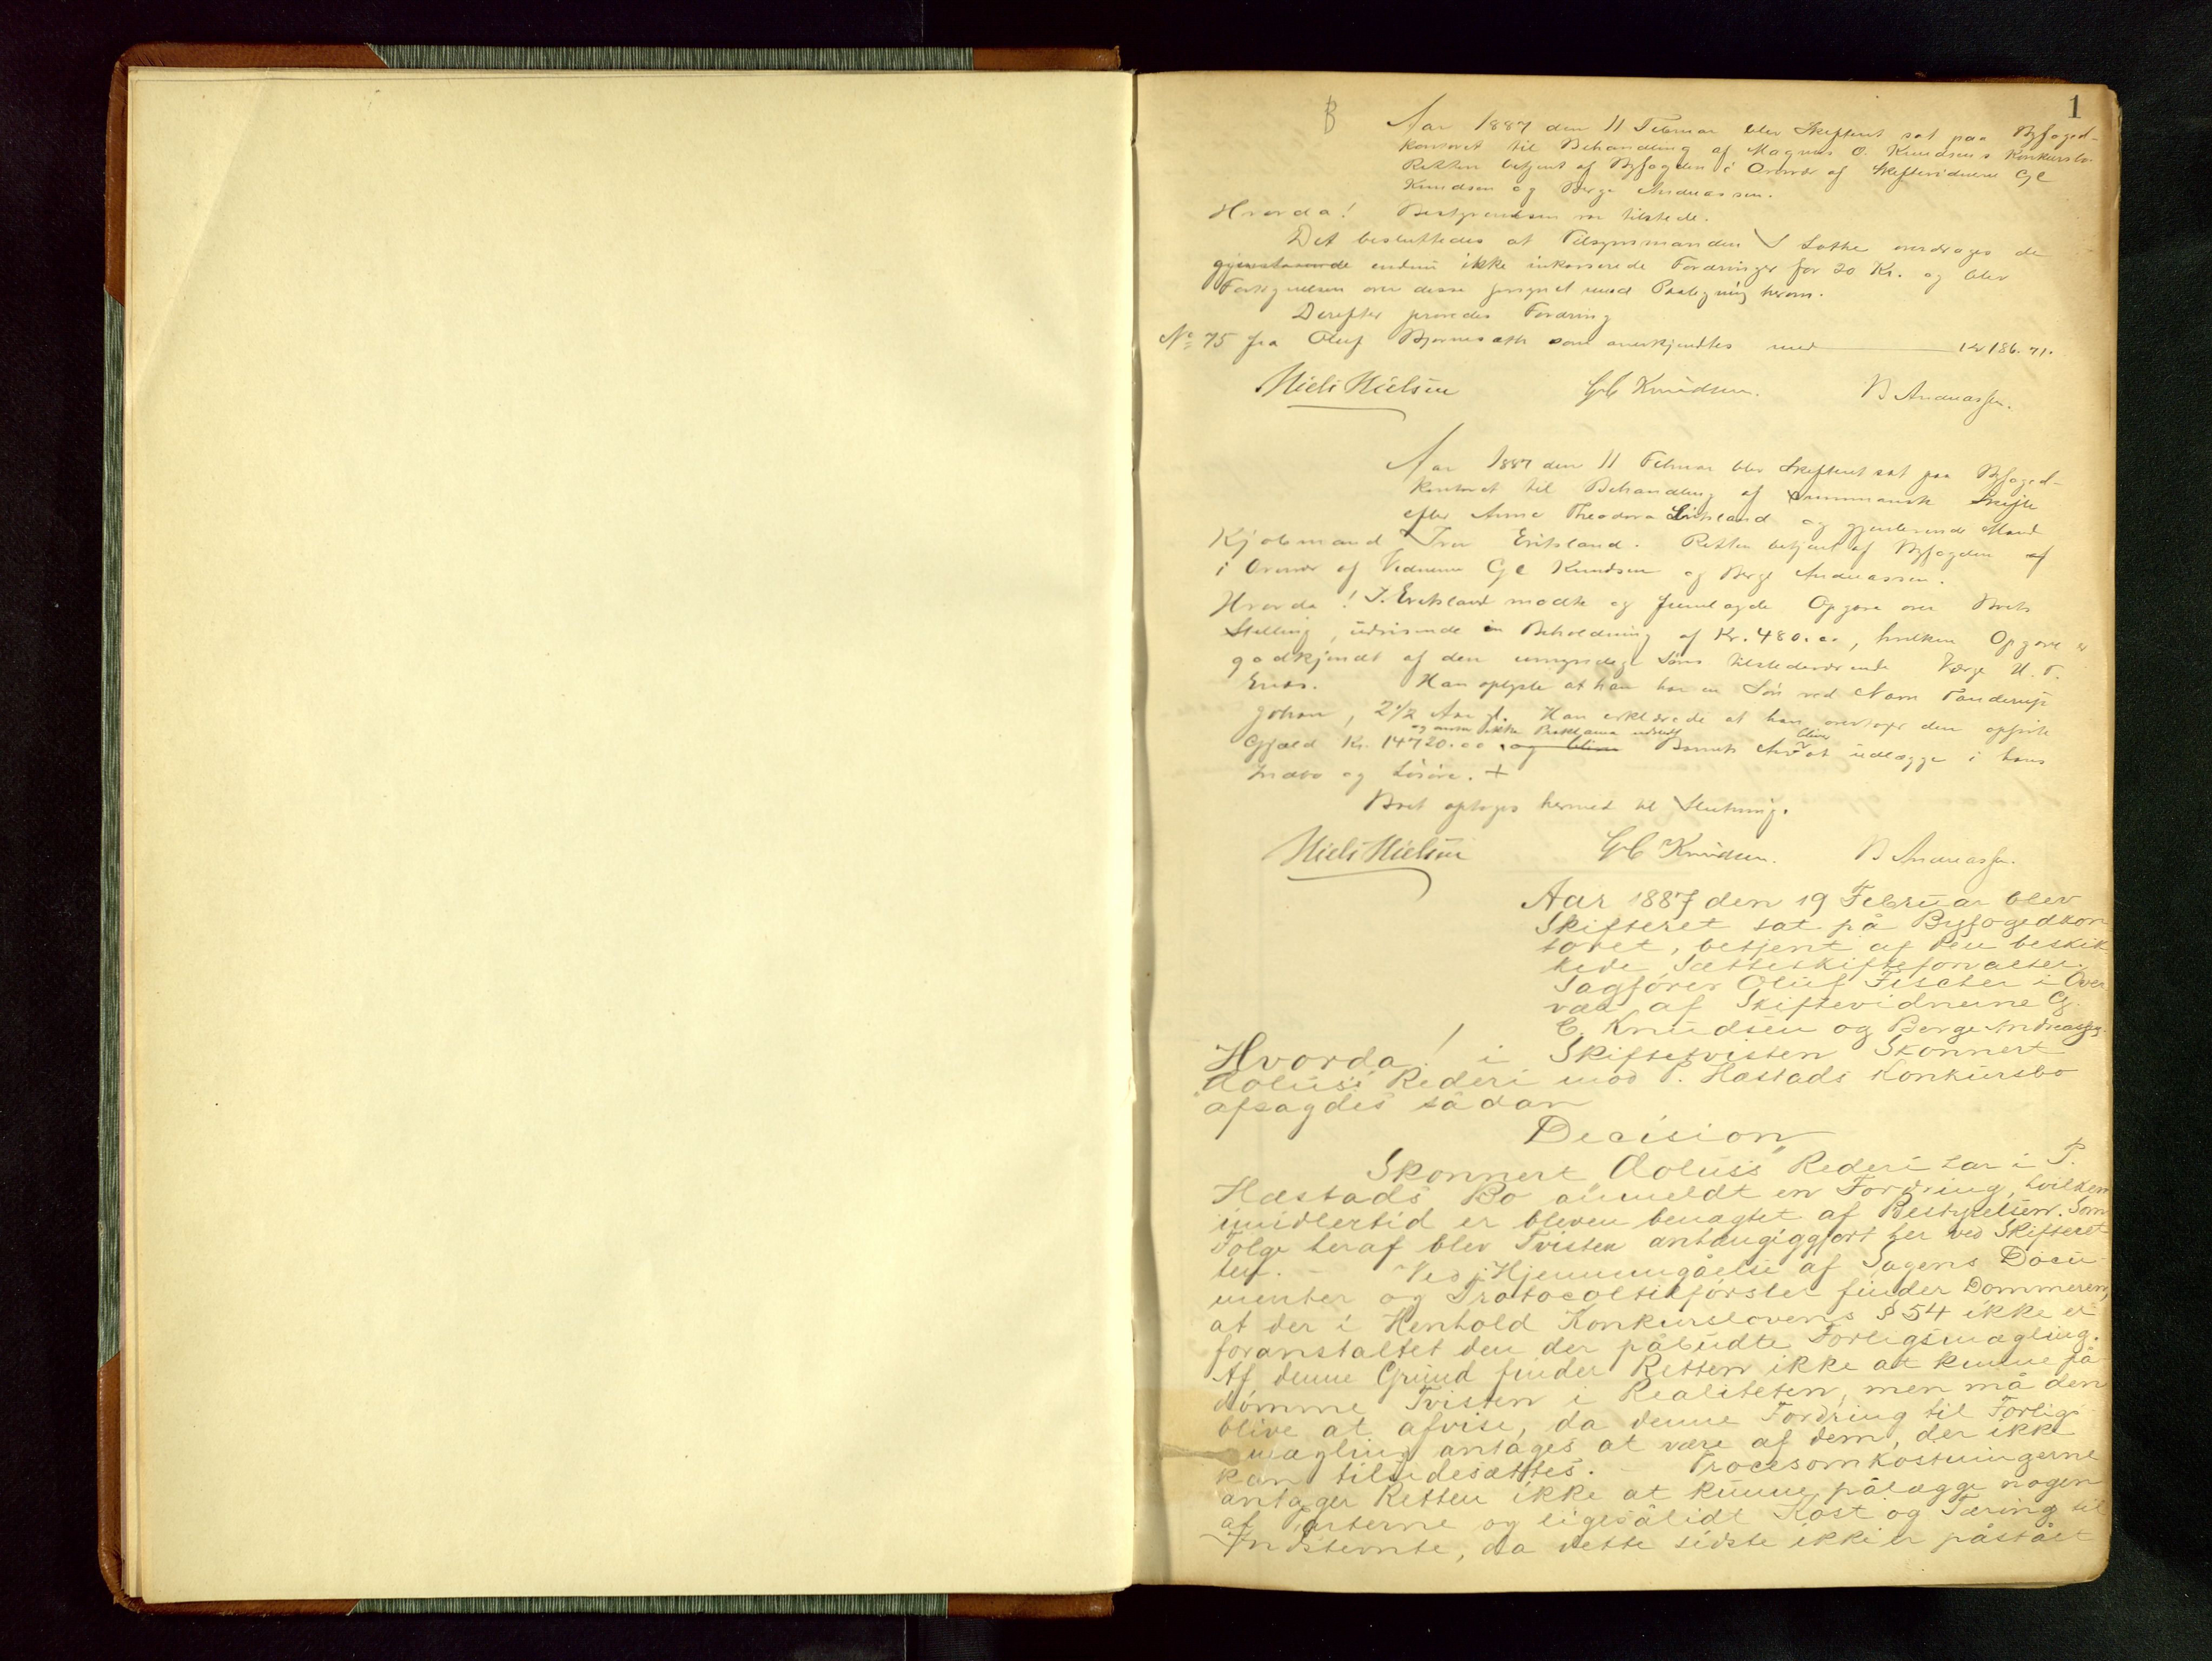 1
B
Aar 1887 den 11 Februar blev Skifteret sat paa Byfoged-
kontoret til Behandling af Magnus O. Knudsens Konkursbo.
Retten betjent af Byfogden i Overvær af Skiftevidnerne G C
Knudsen og Berge Andreassen.
Hvorda! Bestyrelsen var tilstede.
Det besluttedes at Tilsynsmanden J Lothe overdrages de
gjenstaaende endnu ikke inkasserede Fordringer for 20 Kr. og blev
Fortegnelsen over disse forsynet med Paategning herom.
Derefter prøvedes Fordring
No 75 fra Oluf Bjørnesæth som anerkjendtes med 186.71.
Niels Nielsen G C Knudsen. B Andreassen.
Aar 1887 den 11 Februar blev Skifteret sat paa Byfoged-
kontoret til Behandling af summarisk Skifte
efter Anne Theodora Eriksland og gjenlevende Mand
Kjøbmand Iver Eriksland. Retten betjent af Byfogden
i Overvær af Vidnerne G C Knudsen og Berge Andreassen.
Hvorda! I. Eriksland mødte og fremlagde Opgave over Boets
Stilling, udvisende en Beholdning af Kr. 480.00, hvilken Opgave er
godkjendt af den umyndige Søns tilstedeværende Værge U. T.
Han oplyste at han har en Søn ved Navn Tanderup
Johan, 2 1/2 Aar gl. Han erklærede at han overtager den opførte
og anser ikke Proklama udstedt bliver
Gjæld Kr. 14720.00 og bliver Barnets Arv at udlægge i hans
Indbo og Løsøre. +
Boet optoges hermed til Slutning.
Niels Nielsen G C Knudsen. B Andreassen.
Aar 1887 den 19 Februar blev
Skifteret sat på Byfogedkon
toret, betjent af den beskik
kede Sætteskifteforvalter.
Sagfører Oluf Fischer i Over
vær af Skiftevidnerne G.
C. Knudsen og Berge Andreassen.
Hvorda! i Skiftetvisten Skonnert
"Æolus's" Rederi mod P. Hæstads Konkursbo
afsagdes sådan
Decision
Skonnert "Æolus's" Rederi har i P.
Hæstads Bo anmeldt en Fordring, hvilken
imidlertid er bleven benægtet af Bestyrelsen. Som
Følge heraf blev Tvisten anhængiggjort her ved Skifteret
ten. - Ved Gjennemgåelse af Sagens Docu-
menter og Protocoltilførsler finder Dommeren,
at der i Henhold Konkurslovens § 54 ikke er
foranstaltet den der påbudte Forligsmægling.
Af denne Grund finder Retten ikke at kunne på
dømme Tvisten i Realiteten, men må den
blive at afvise, da denne Fordring til Forligs
mægling antages at være af dem, der ikke
kan tilsidesættes. - Procesomkostningerne
antager Retten ikke at kunne pålægge nogen
af Parterne og ligesålidt Kost og Tæring til
Indstevnte, da dette sidste ikke er påstået